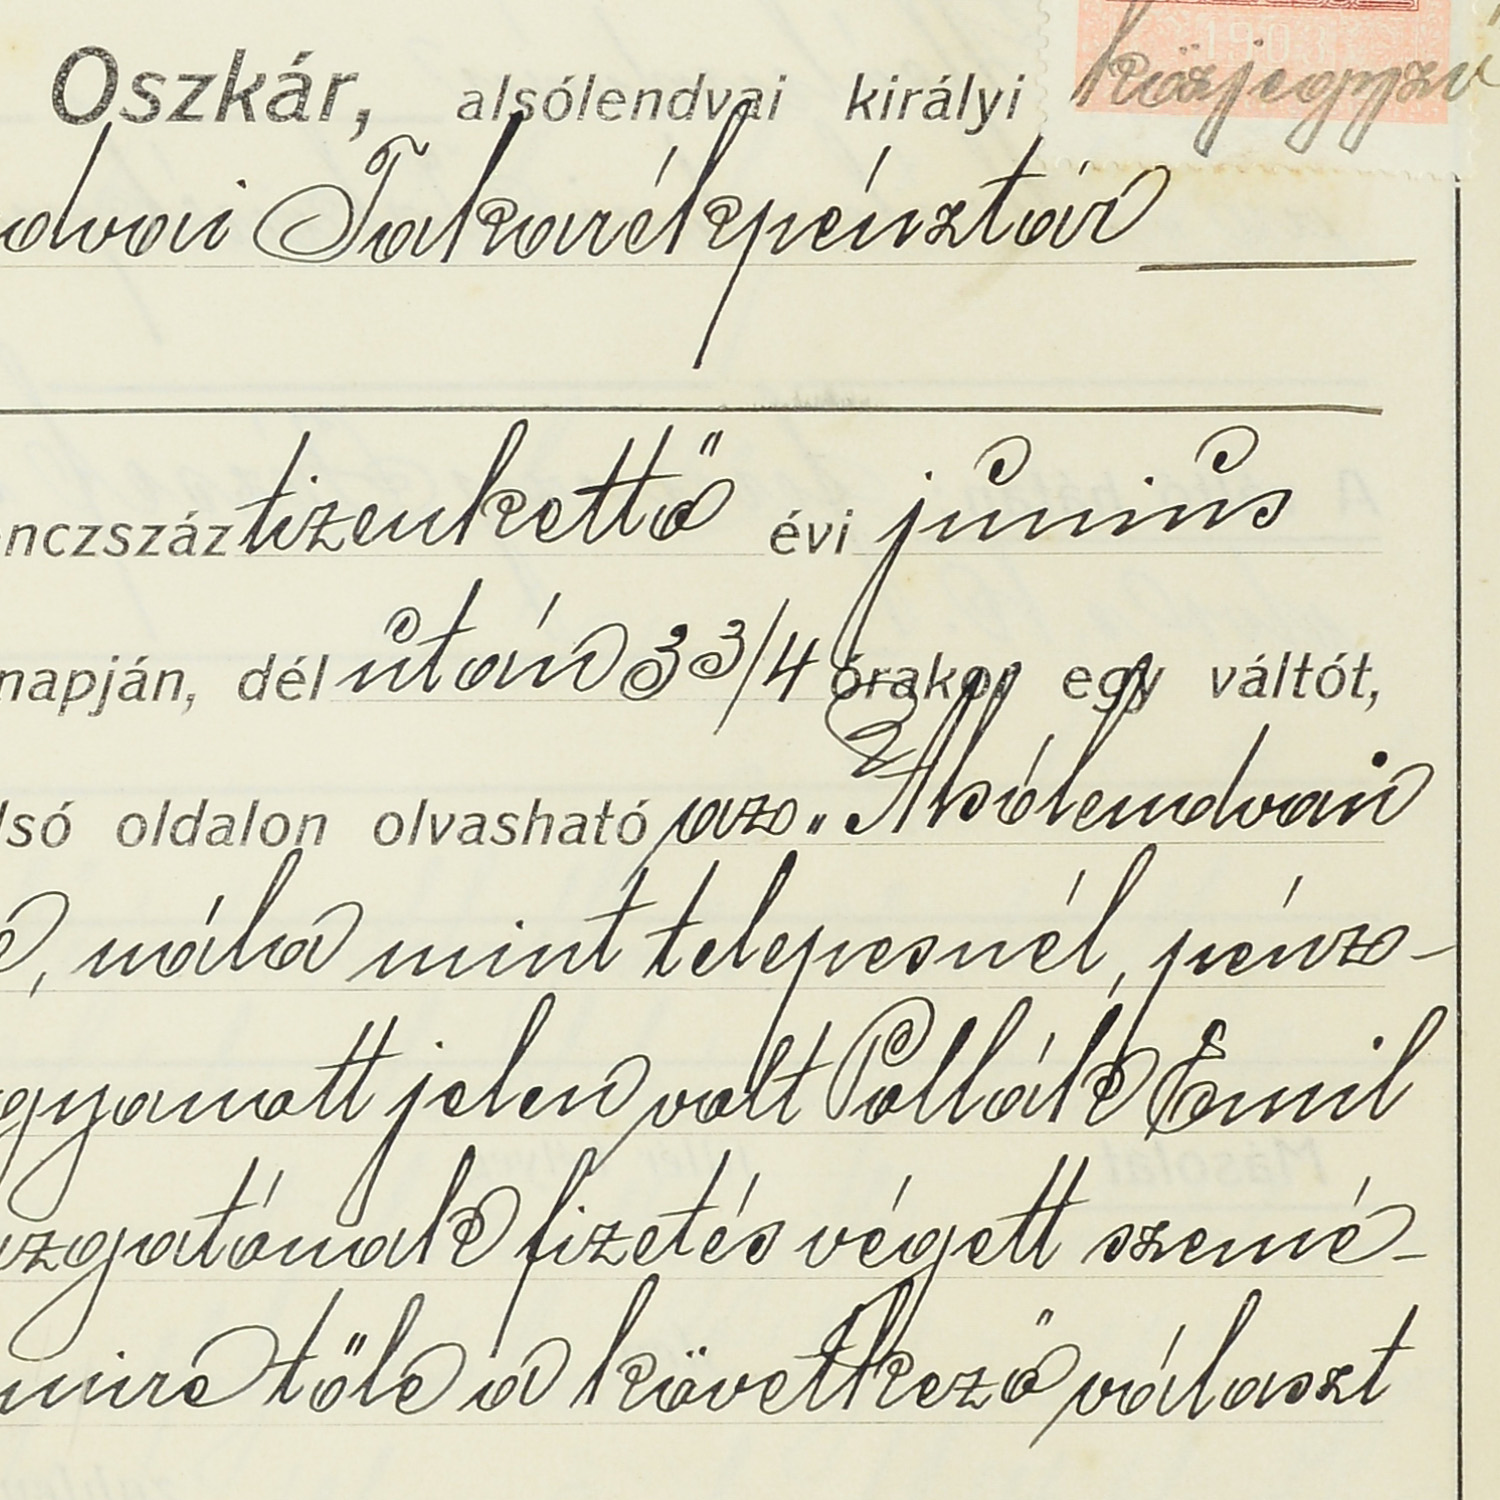 Oszkár, alsólendvai királyi közjegyző
dvai Takarékpénztár
nczszáz tizenkettő évi június
napján, dél után 3 3/4 órakor egy váltót,
lsó oldalon olvasható az „Alsólendvai
é, nála mint telepesnél, pénz-
gyanott jelen volt Pollák Emil
zgatónak fizetés végett szemé-
mire tőle a következő választ